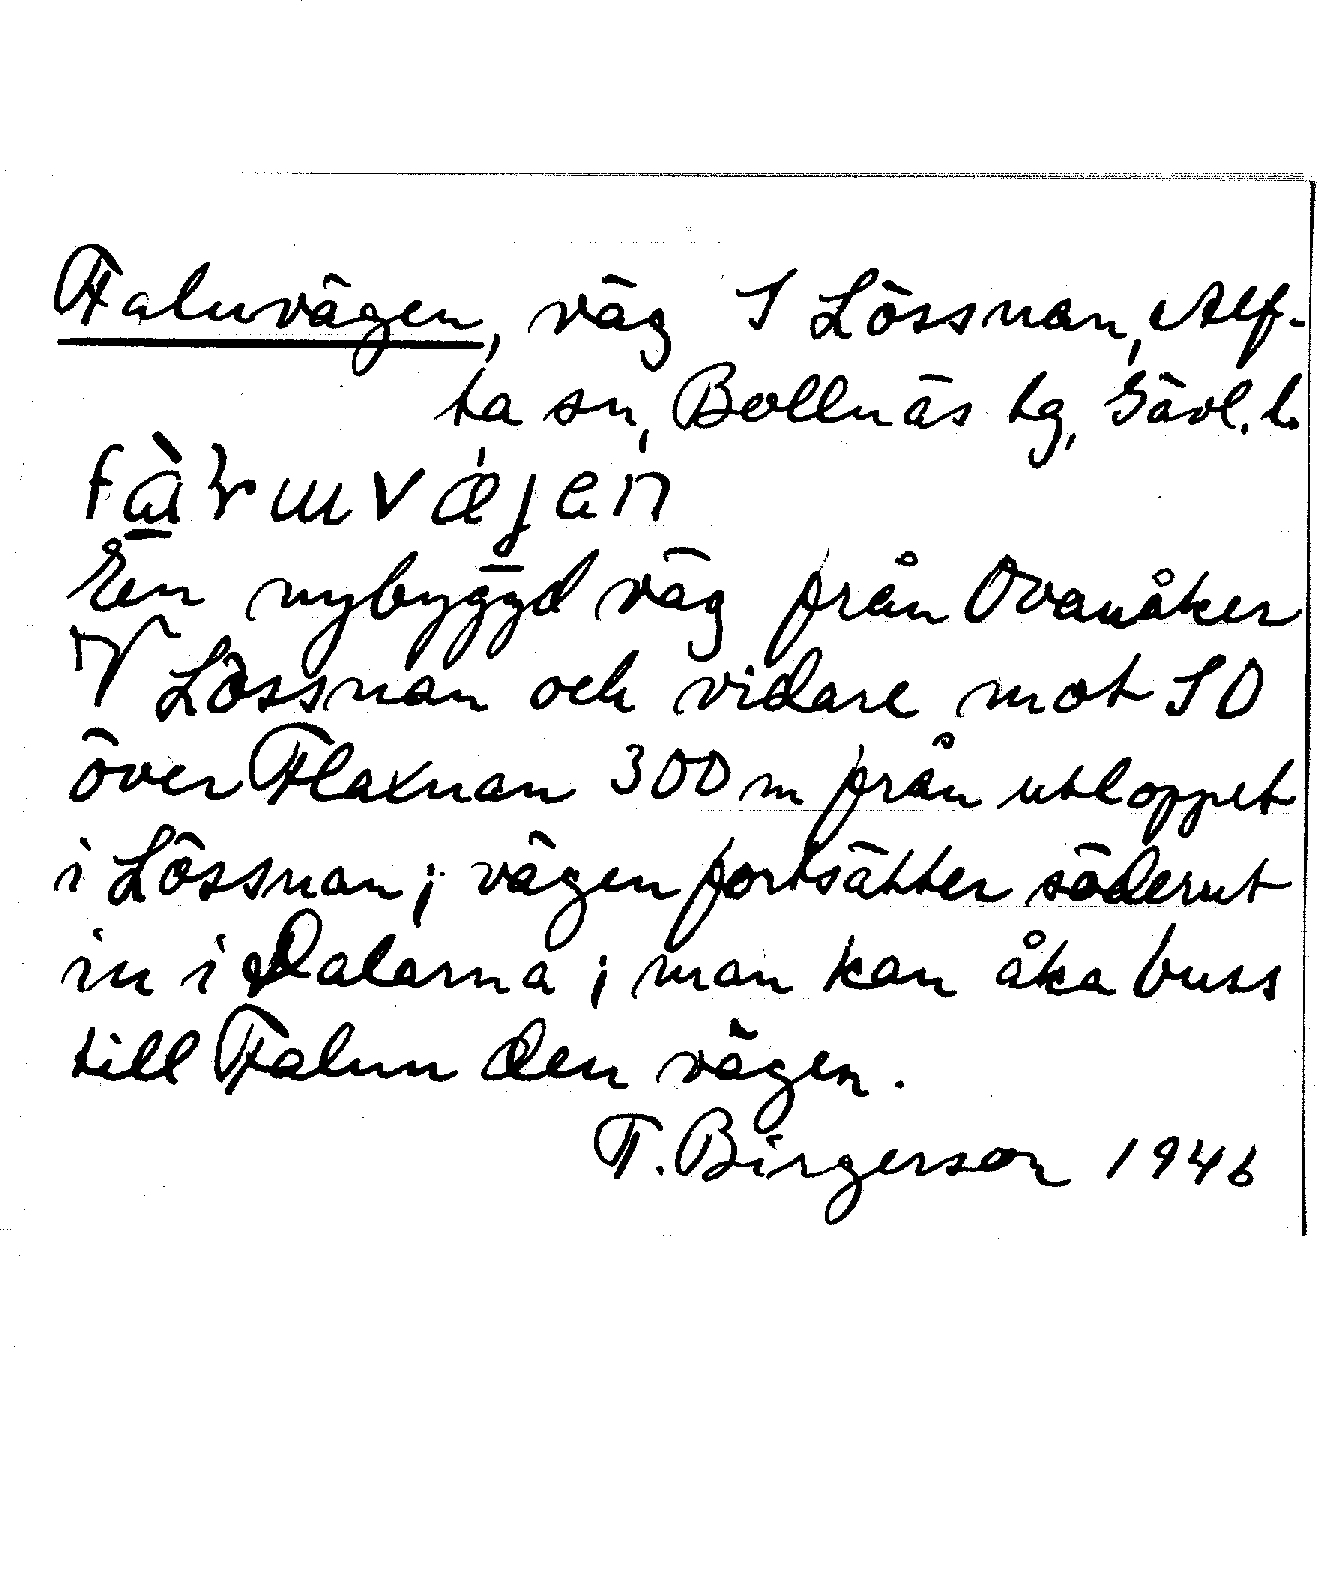 Faluvägen, väg S Lössnan, Alf-
ta sn, Bollnäs tg, Gävl. l.
En nybyggd väg från Ovanåker
V Lössnan och vidare mot SO
över Flaxnan 300 m från utloppet
i Lössnan; vägen fortsätter söderut
in i Dalarna; man kan åka buss
till Falun den vägen.
T. Birgerson 1946